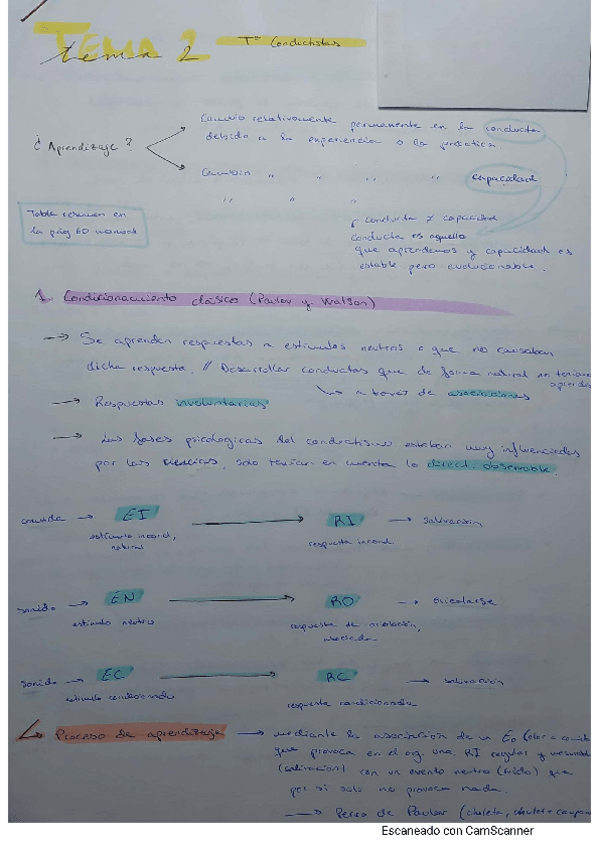 TEMA 2
tema 2
Tª Conductistas
¿Aprendizaje?
Cambio relativamente permanente en la conducta
debido a la experiencia o la práctica
Cambio " " " " capacidad
" " "
Tabla resumen en
la pág 60 manual
conducta ≠ capacidad
conducta es aquello
que aprendemos y capacidad es
estable pero evolucionable.
1. Condicionamiento clásico (Pavlov y Watson)
→ Se aprenden respuestas a estímulos neutros o que no causaban
dicha respuesta. // Desarrollar conductas que de forma natural
a través de asociaciones
→ Respuestas involuntarias
→ Las bases psicológicas del conductismo estaban muy influenciadas
por las ciencias, solo tenían en cuenta lo direct. observable.
comida → EI → RI → salivación
estímulo incond, natural
respuesta incond
sonido → EN → RO → orientarse
estímulo neutro
respuesta de orientación,
sonido → EC → RC → salivación
estímulo condicionado
respuesta condicionada
Proceso de aprendizaje → mediante la asociación de un
que provoca en el org. una RI regular y
(salivación) con un evento neutro (ruido) que
por si solo no provoca nada.
→ Perro de Pavlov
Escaneado con CamScanner